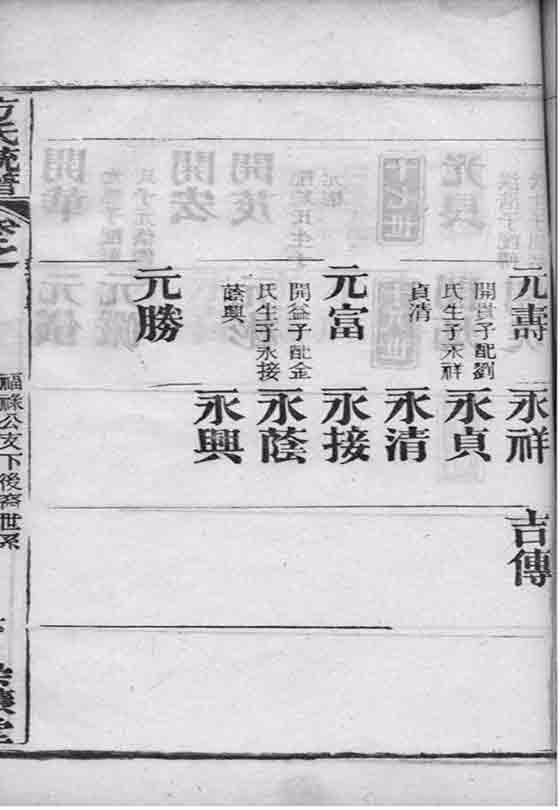 元壽
開貴子配劉
氏生子永祥
貞清
元富
開益子配金
氏生子永接
蔭興
元勝
永祥
永貞
永清
永接
永蔭
永興
吉傳
方氏統譜
卷之
福祿公支下後裔世系